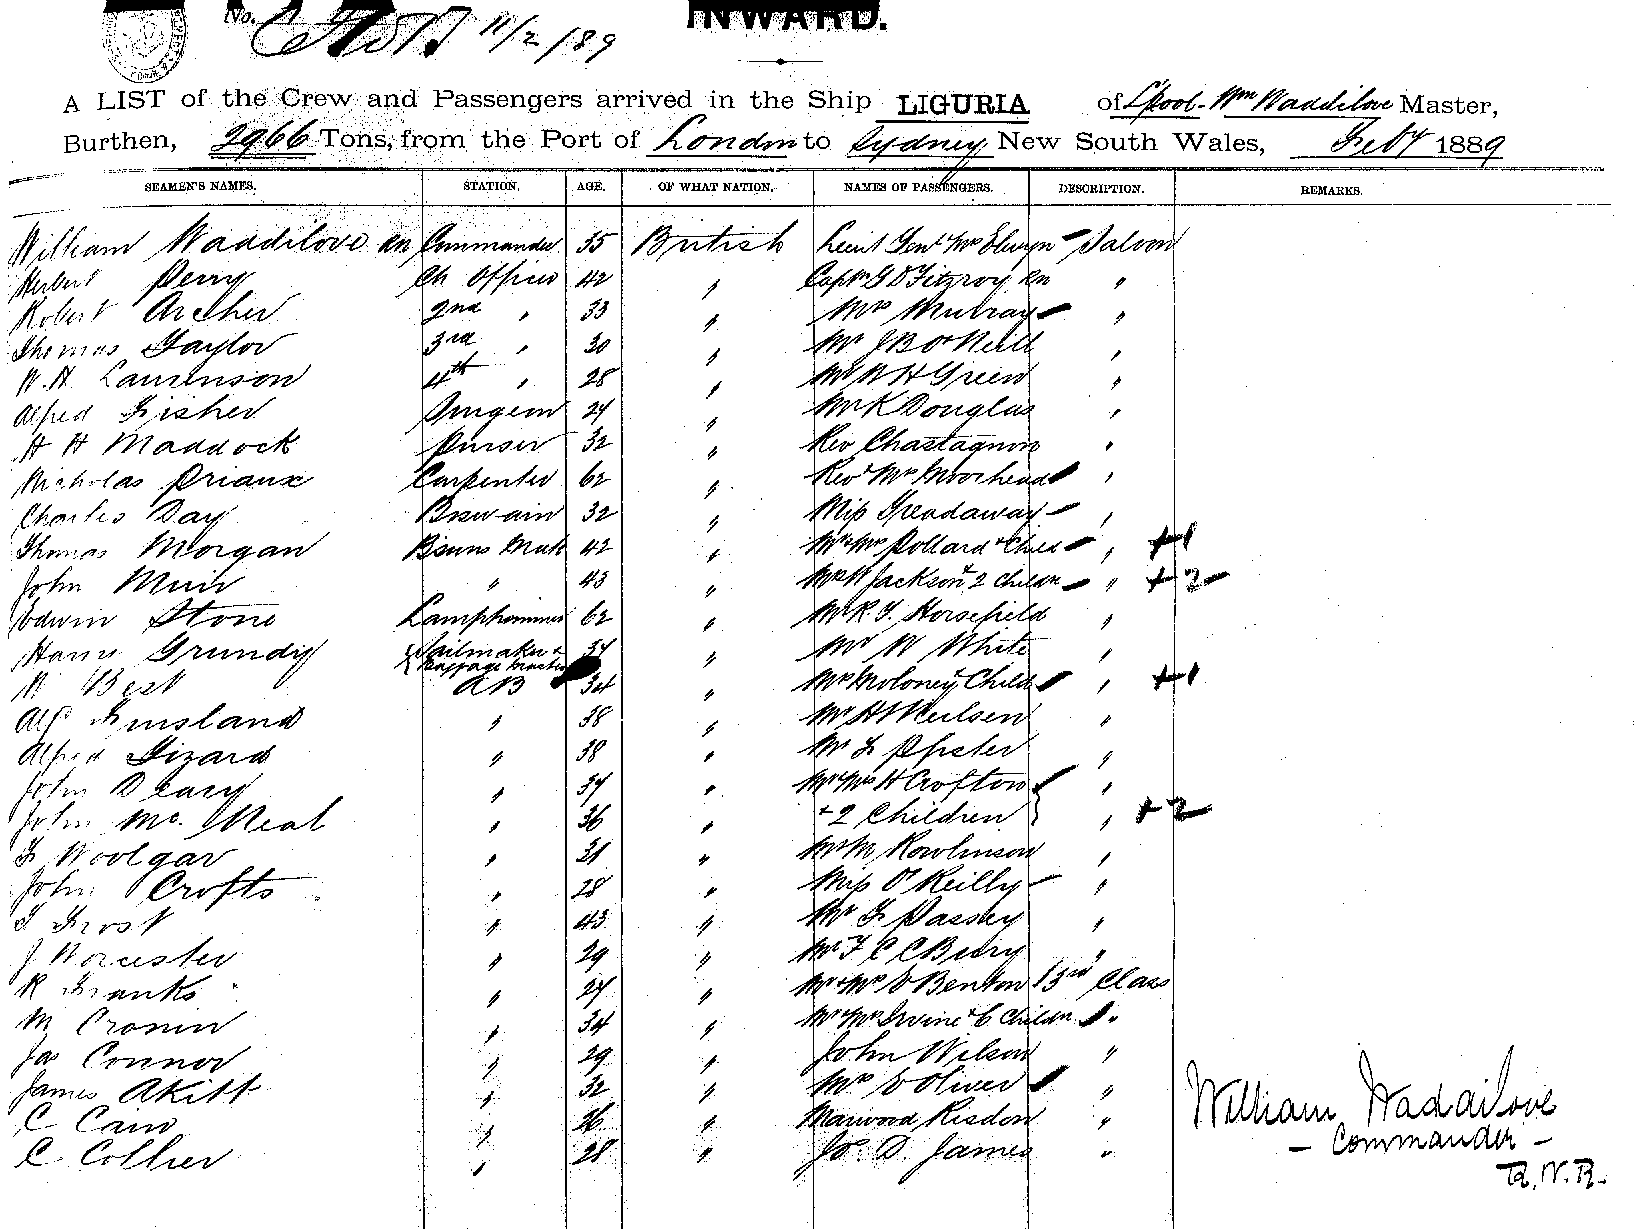 No.
11/2/89
INWARD.
A LIST of the Crew and Passengers arrived in the Ship LIGURIA of L'pool - Wm Waddilove Master,
Burthen, 2966 Tons, from the Port of London to Sydney New South Wales, Feby 1889
SEAMEN'S NAMES. STATION. AGE. OF WHAT NATION. NAMES OF PASSENGERS. DESCRIPTION. REMARKS.
William Waddilove Commander 55 British Lieut Genl Mc Elwyn - Saloon
Herbert Perry Ch Officer 42 " Captn G D Fitzroy RN "
Robert Archer 2nd " 33 " Mrs Murray "
Thomas Taylor 3rd " 30 " Mr J B O'Neill "
W. H. Laurenson 4th " 28 " Mr W H Green "
Alfred Fisher Surgeon 24 " Mr K Douglas "
H H Maddock Purser 32 " Rev Chastagnon "
Nicholas Priaux Carpenter 62 " Revd Mr Moorhead "
Charles Day Bswain 32 " Miss Treadaway - "
Thomas Morgan Bswns Mate 42 " Mr + Mrs Pollard + Child " +1
John Muir " 43 " Mrs W Jackson + 2 Childn " +2
Edwin Stone Lamptrimmer 62 " Mr R. T. Horsefield "
Harry Grundy Sailmaker & Baggage Master 54 " Mr W White "
W West AB 34 " Mrs Moloney + Child " +1
Alf Finsland " 38 " Mr H Neilsen "
Alfred Gizard " 38 " Mr F Pfister "
John Deacy " 34 " Mr + Mrs H Crofton "
John Mc Neal " 36 " + 2 Children " +2
F Woolgar " 31 " Mr M Rowlinson "
John Crofts " 28 " Miss O'Reilly - "
T Frost 43 " Mr F Passey "
J Worcester " 29 " Mr F C C Bury "
R Franks " 24 " Mr + Mrs D Benton 3rd Class
M Cronin " 34 " Mr + Mrs Irvine + 6 Childn "
Jas Connor " 29 " John Wilson "
James Akitt " 32 " Mrs D Oliver "
C Cain " 26 " Marwood Risdon "
C Collier " 28 " Jos D James "
William Waddilove
- Commander -
R.N.R.